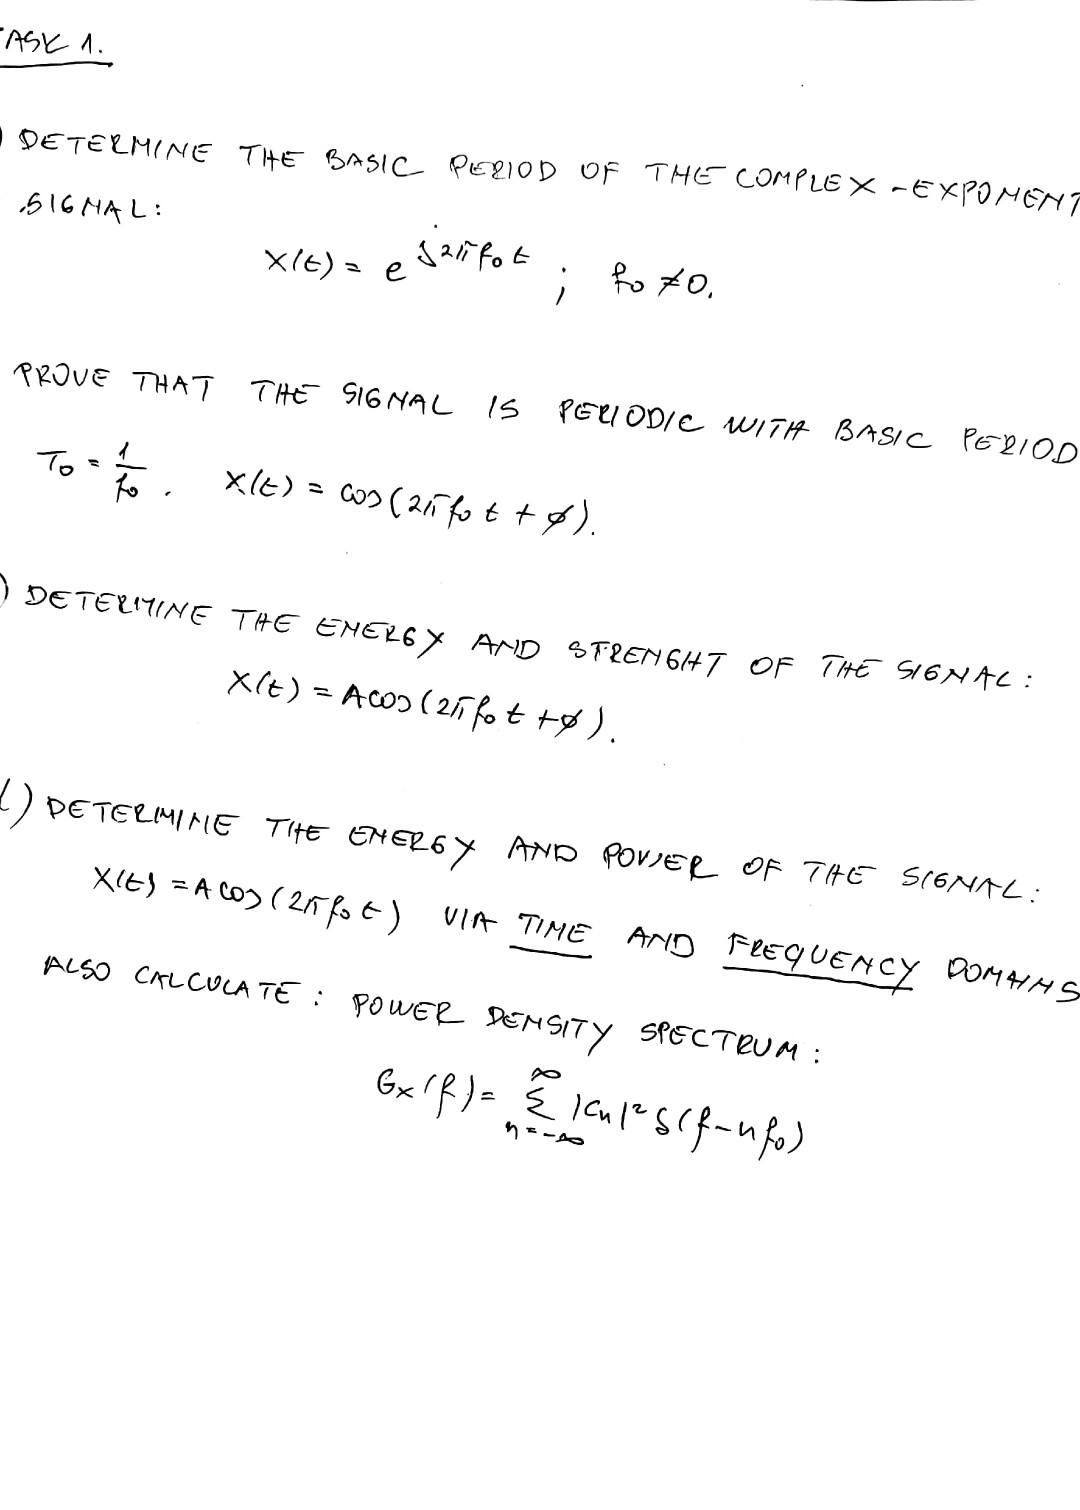 TASK 1.
) DETERMINE THE BASIC PERIOD OF THE COMPLEX-EXPONENT
SIGNAL:
X(t) = e^{j2πf₀t} ; f₀ ≠ 0.
PROVE THAT THE SIGNAL IS PERIODIC WITH BASIC PERIOD
T₀ = 1/f₀ . X(t) = cos(2πf₀t + ϕ).
) DETERMINE THE ENERGY AND STRENGHT OF THE SIGNAL:
X(t) = Acos(2πf₀t + ϕ).
) DETERMINE THE ENERGY AND POWER OF THE SIGNAL:
X(t) = A cos(2πf₀t) VIA TIME AND FREQUENCY DOMAINS
ALSO CALCULATE: POWER DENSITY SPECTRUM:
Gx(f) = ∞Σn=-∞ |Cn|² δ(f-nf₀)